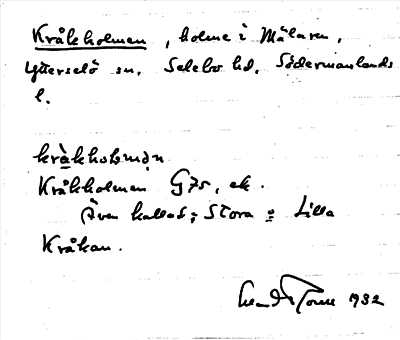 Kråkholmen, holme i Mälaren,
Ytterselö sn. Selebo hd. Södermanlands
l.
kråkhoɫmən
Kråkholmen G75, ek.
Även kallad: Stora o Lilla
Kråkan.
1932